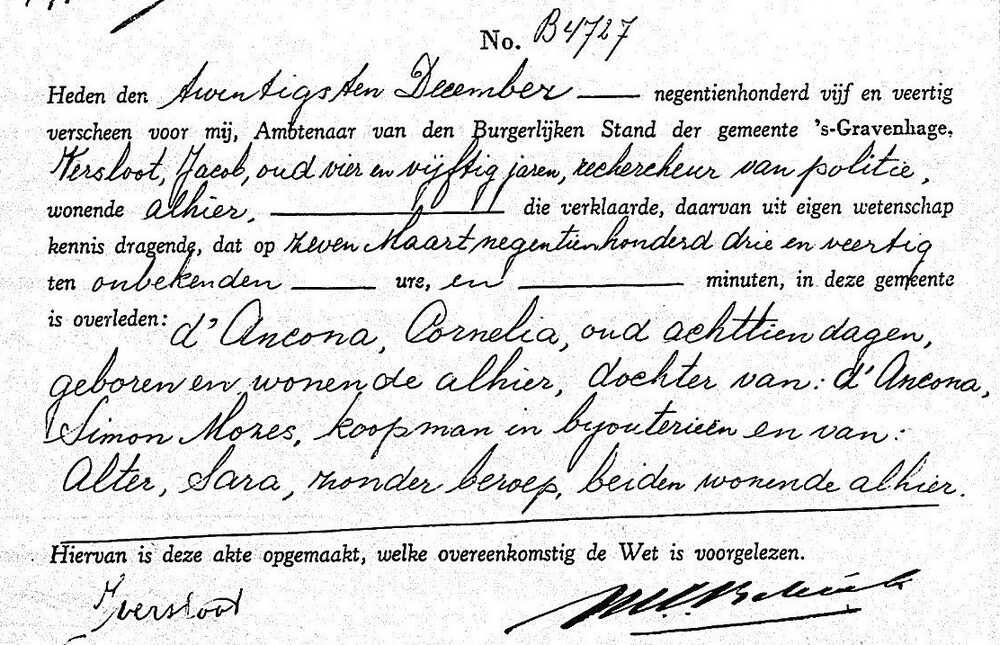 No. B4727
Heden den twintigsten December negentienhonderd vijf en veertig
verscheen voor mij, Ambtenaar van den Burgerlijken Stand der gemeente 's-Gravenhage,
Versloot, Jacob, oud vier en vijftig jaren, rechercheur van politie,
wonende alhier, die verklaarde, daarvan uit eigen wetenschap
kennis dragende, dat op zeven Maart negentienhonderd drie en veertig
ten onbekenden ure, en minuten, in deze gemeente
is overleden: d'Ancona, Cornelia, oud achttien dagen,
geboren en wonende alhier, dochter van: d'Ancona,
Simon Mozes, koopman in bijouterieën en van:
Alter, Sara, zonder beroep, beiden wonende alhier.
Hiervan is deze akte opgemaakt, welke overeenkomstig de Wet is voorgelezen.
Jversloot